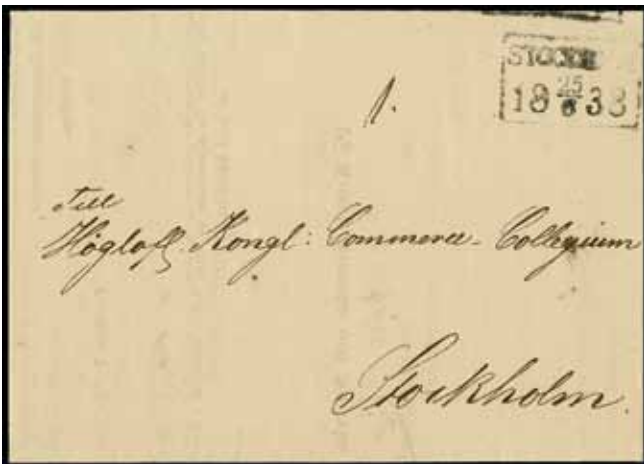 STOCKH
18 25/6 38
1.
Till
Höglofl. Kongl: Commerce-Collegium
Stockholm.